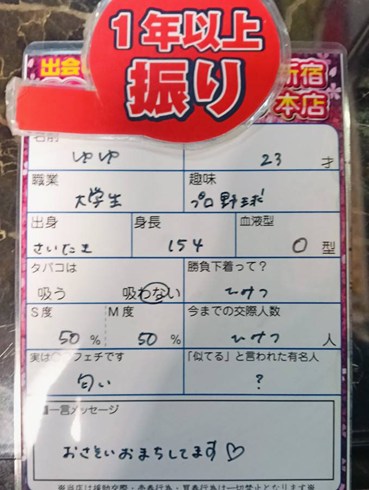 1年以上
振り
出会
新宿
本店
名前
ゆゆ
23 才
職業
大学生
趣味
プロ野球
出身
さいたま
身長
154
血液型
O 型
タバコは
吸う 吸わない
勝負下着って?
ひみつ
S度
50 %
M度
50 %
今までの交際人数
ひみつ 人
実は○○フェチです
匂い
「似てる」と言われた有名人
?
一言メッセージ
おさそいおまちしてます♡
※当店は援助交際・売春行為・買春行為は一切禁止となります※